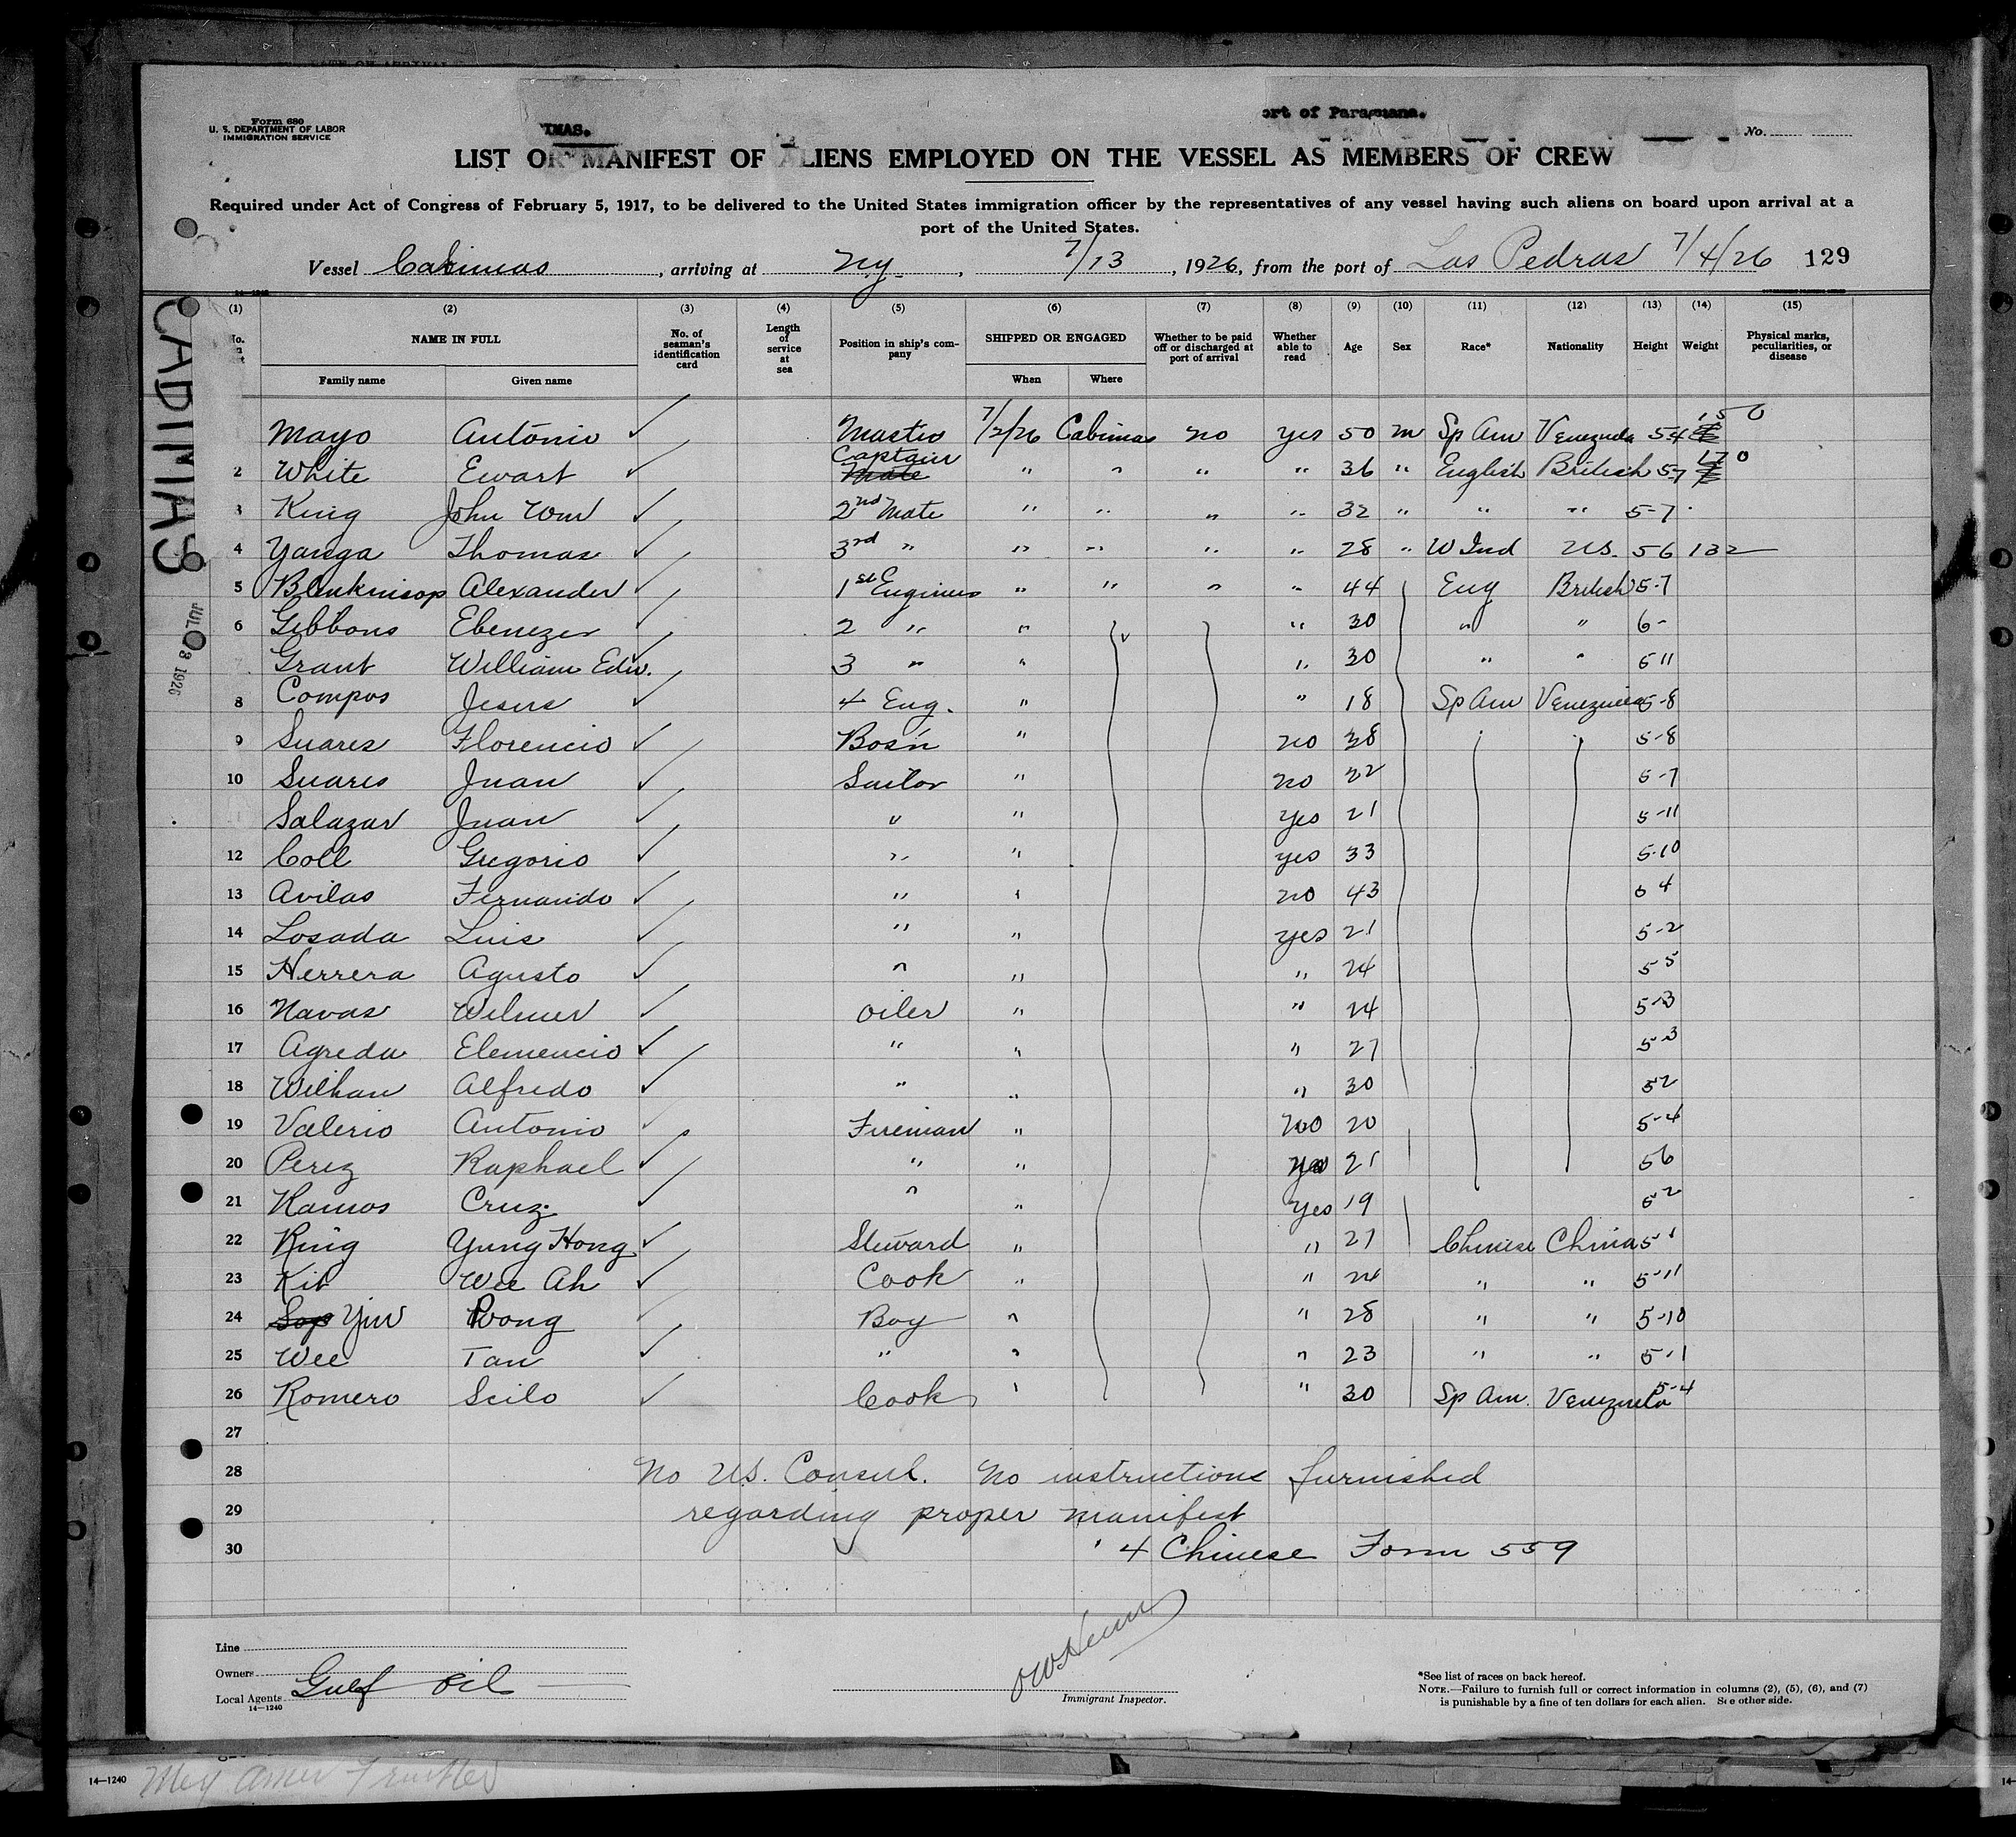 Form 680
U. S. DEPARTMENT OF LABOR
IMMIGRATION SERVICE
ort of Paraguana.
No.
LIST OR MANIFEST OF ALIENS EMPLOYED ON THE VESSEL AS MEMBERS OF CREW
Required under Act of Congress of February 5, 1917, to be delivered to the United States immigration officer by the representatives of any vessel having such aliens on board upon arrival at a
port of the United States.
Vessel Cabimas, arriving at NY., 7/13, 1926, from the port of Las Pedras 7/4/26 129
(1) (2) (3) (4) (5) (6) (7) (8) (9) (10) (11) (12) (13) (14) (15)
NAME IN FULL No. of seaman's identification card Length of service at sea Position in ship's company SHIPPED OR ENGAGED Whether to be paid off or discharged at port of arrival Whether able to read Age Sex Race* Nationality Height Weight Physical marks, peculiarities, or disease
Family name Given name When Where
Mayo Antonio ✓ Master 7/2/26 Cabimas no yes 50 m Sp Am Venezuela 54 150
2 White Ewart ✓ Captain Mate " " " " 36 " English British 5-7 170
3 King John Wm ✓ 2nd Mate " " " " 32 " " " 5-7
4 Yanga Thomas ✓ 3rd " " " " " 28 " W Ind US. 56 132
5 Blenkinsop Alexander ✓ 1st Engineer " " " " 44 Eng British 5-7
6 Gibbons Ebenezer ✓ 2 " " " 30 " " 6-
7 Grant William Edw. ✓ 3 " " " 30 " " 511
8 Compos Jesus ✓ 4 Eng. " " 18 Sp Am Venezuela 5-8
9 Suares Florencio ✓ Bos'n " no 38 5-8
10 Suares Juan ✓ Sailor " no 22 5-7
Salazar Juan ✓ " " yes 21 5-11
12 Coll Gregorio ✓ " " yes 33 5-10
13 Avilas Fernando ✓ " " no 43 54
14 Losada Luis ✓ " " yes 21 5-2
15 Herrera Agusto ✓ " " " 24 55
16 Navas Wilmer ✓ oiler " " 24 5-3
17 Agreda Elemencio ✓ " " " 27 5-3
18 Wilhan Alfredo ✓ " " " 30 52
19 Valerio Antonio ✓ Fireman " no 20 5-4
20 Perez Raphael ✓ " " yes 21 56
21 Ramos Cruz ✓ " " yes 19 52
22 King Yung Hong ✓ Steward " " 27 Chinese China 51
23 Kit Wee Ah ✓ Cook " " 24 " " 5-11
24 Yin Wong ✓ Boy " " 28 " " 5-10
25 Wee Tan ✓ " " " 23 " " 5-1
26 Romero Scilo ✓ Cook " " 30 Sp Am. Venezuela 5-4
27
28 No US. Consul. No instructions furnished
29 regarding proper manifest
30 4 Chinese Form 559
Line
Owners
Gulf Oil
Local Agents
14—1240
Immigrant Inspector.
*See list of races on back hereof.
NOTE.—Failure to furnish full or correct information in columns (2), (5), (6), and (7)
is punishable by a fine of ten dollars for each alien. See other side.
14—1240
CABIMAS
JUL 1926